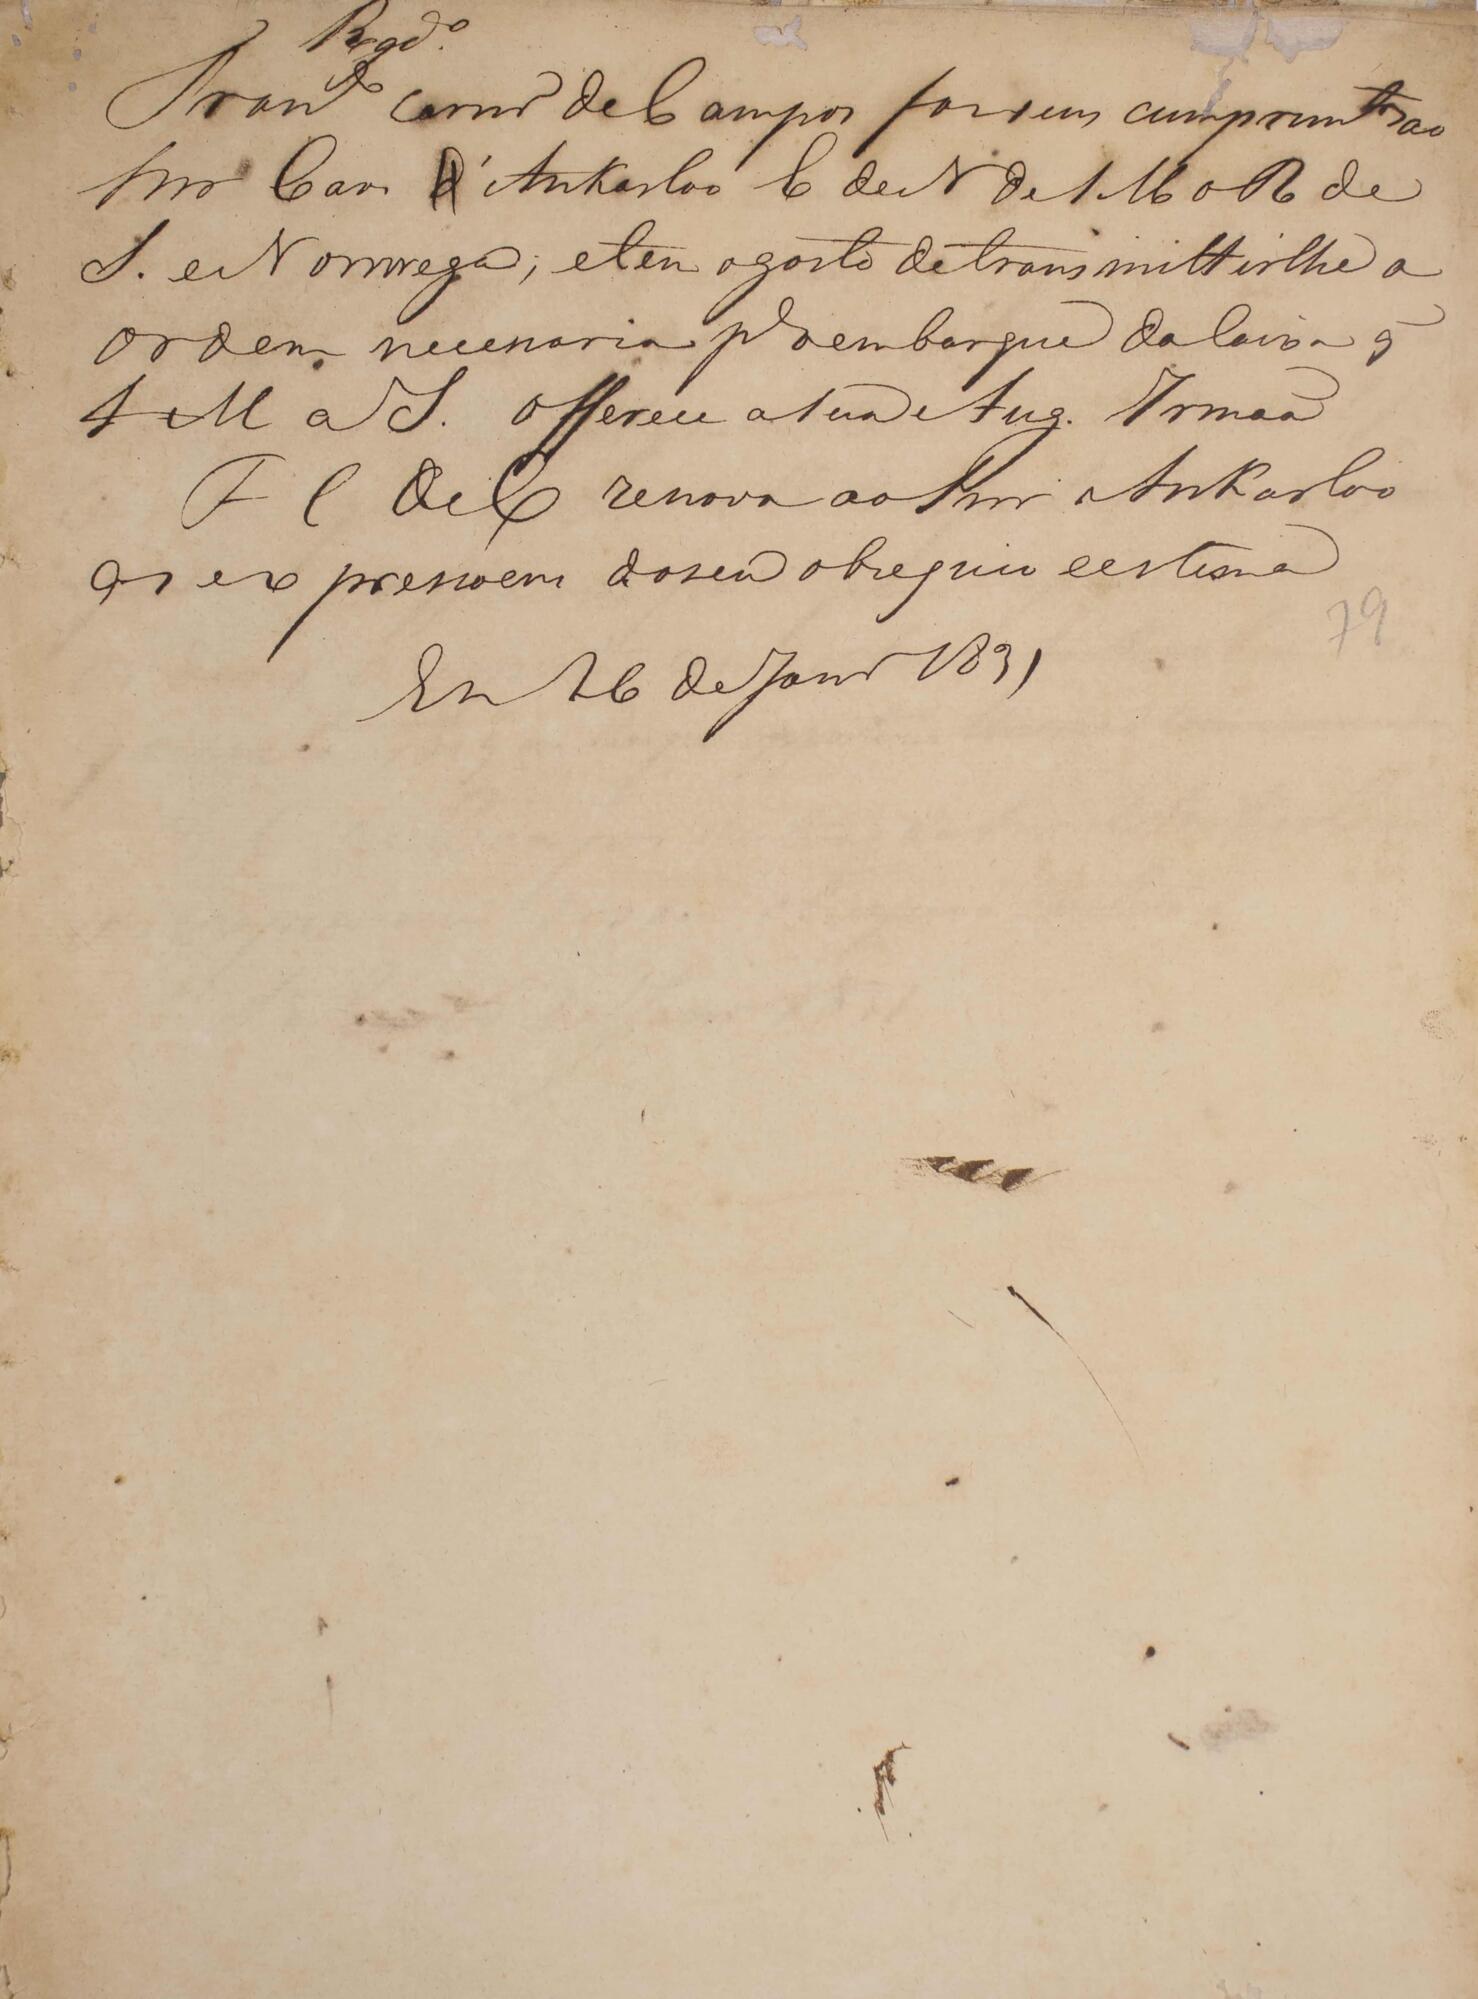 Rgdo.
Franco Carnro de Campos faz seus cumprimtos ao
Snr Cav. d'Ankarloo C de N de S M o R de
S. e Norwega; e tem o gosto de transmittir lhe a
ordem necessaria pa o embarque da Caixa q̃
S M a I. offerece a sua Aug. Irmaã
F C de C renova ao Snr Ankarloo
as expressoens do seu obsequio e estima
Em 26 de Janro 1831
79